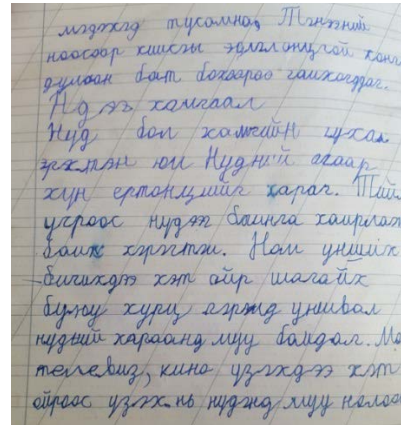 мэдэхэд тусамна, Тэнээний
ноосоор хийсэн эдлэл онцгой хөнг
дулаан бат бөхөөрөө гайхагддаг.
Нүдээ хамгаал
Нүд бол хамгийн чухал
эрхтэн юм Нүдний ачаар
хүн ертөнцийг хараг. Тийм
учраас нүдээ байнга хайрлаж
байж хэрэгтэй. Ном унших
бичихдээ хэт ойр шагайх
буюу хурц гэрэлд уншвал
нүдний хараанд муу байдал. Мө
телевиз, кино үзэхдээ хэт
ойроос үзэх нь нүдэнд муу нөлөө